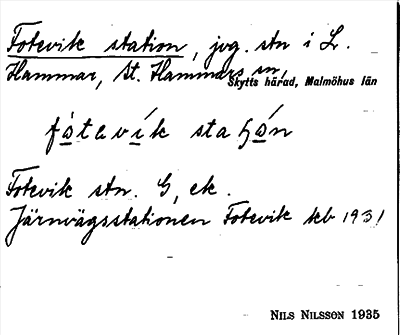 Fotevik station, jvg. stn i L.
Hammar, St. Hammars sn,
Skytts härad, Malmöhus län
fótevík staʃón
Fotevik stn. G, ek.
Järnvägsstationen Fotevik tcb 1931
NILS NILSSON 1935